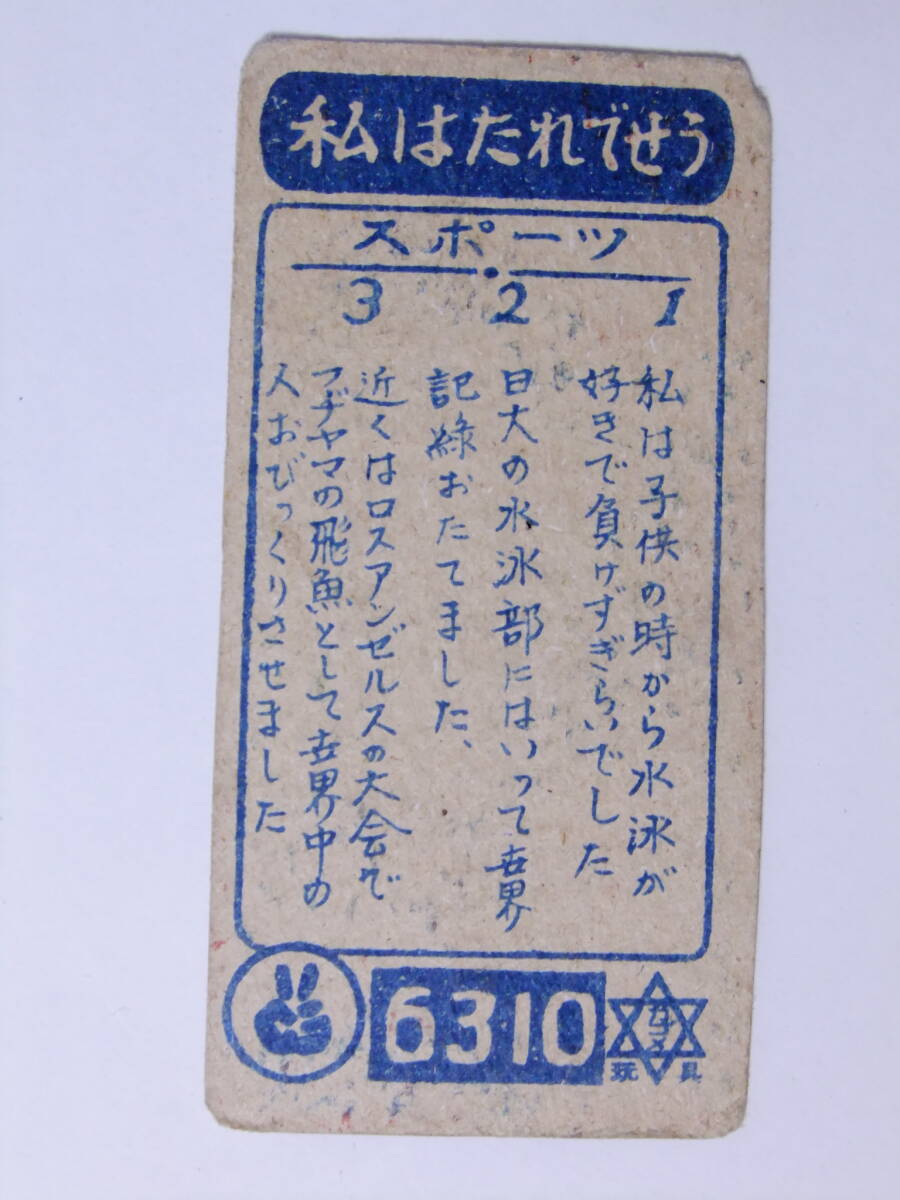 私はたれでせう
スポーツ
1
私は子供の時から水泳が
好きで負けずぎらいでした
2
日大の水泳部にはいって世界
記録おたてました、
3
近くはロスアンゼルスの大会で
フヂヤマの飛魚として世界中の
人おびっくりさせました
6310
玩具